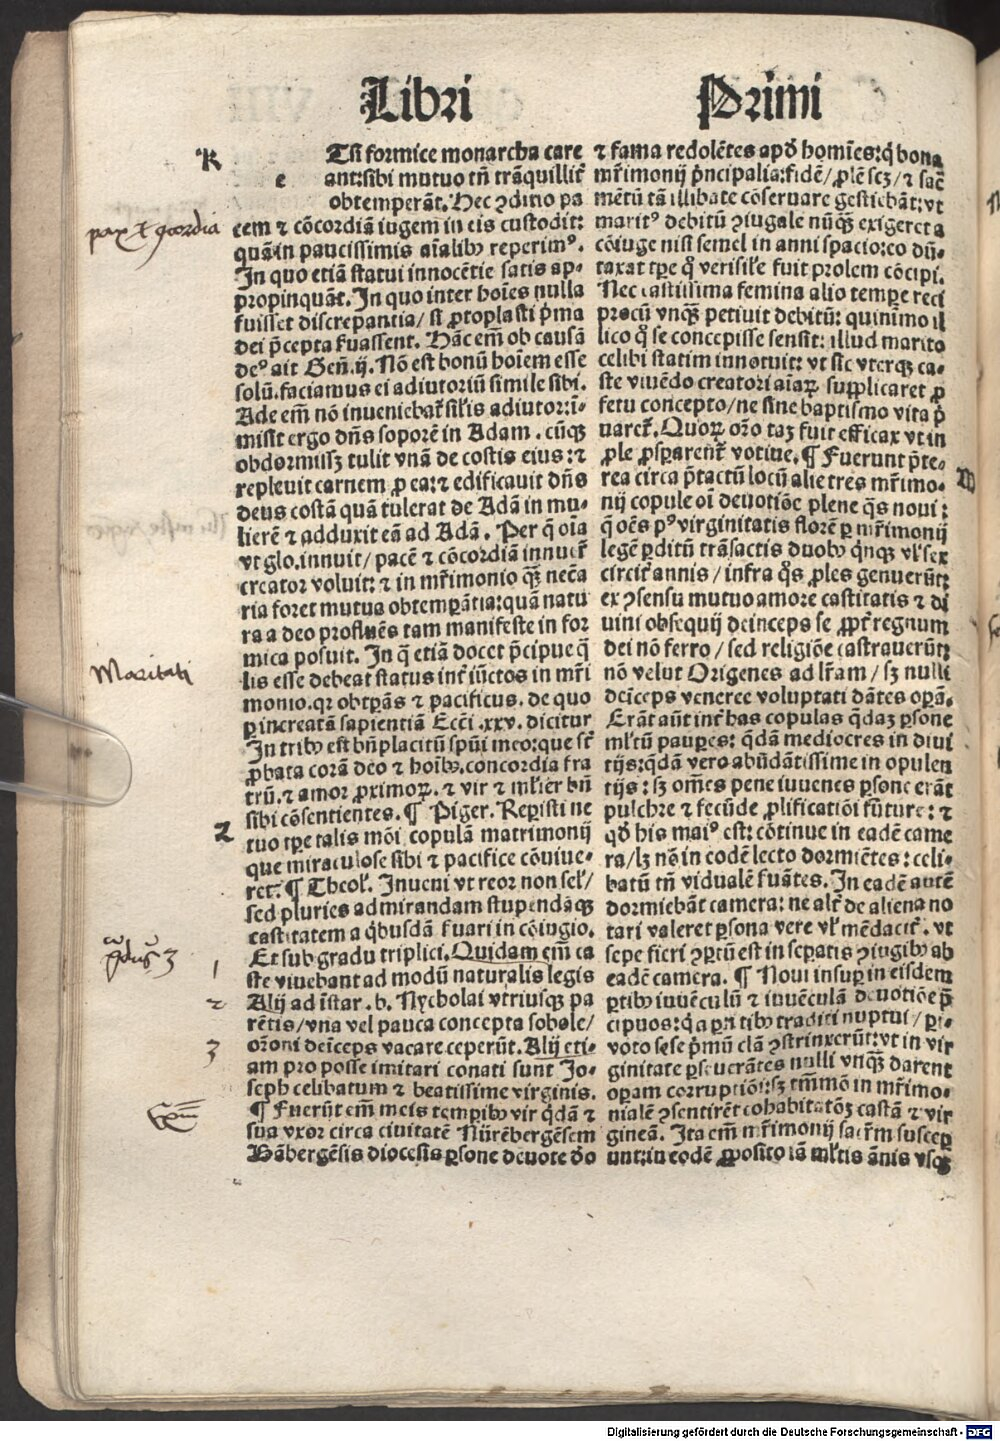 Libri Primi
K
e
Tsi formice monarcha care
ant:sibi mutuo tñ trãquillit̃
obtemperãt. Hec ꝯditio pa
cem ⁊ cõcordiã iugem in eis custodit:
quã in paucissimis aĩalibꝫ reperimꝰ.
In quo etiã statui innocẽtie satis ap-
propinquãt. In quo inter hoĩes nulla
fuisset discrepantia/ si ꝓtoplasti p̃ma
dei p̃cepta ẜuassent. Hãc em̃ ob causã
deꝰ ait Geñ.ij. Nõ est bonũ hoĩem esse
solũ.faciamus ei adiutoriũ simile sibi.
Ade em̃ nõ inueniebat̃ sil'is adiutor:ĩ-
misit ergo dñs soporẽ in Adam. cũqꝫ
obdormissꝫ tulit vnã de costis eius:⁊
repleuit carnem ꝓ ea:⁊ edificauit dñs
deus costã quã tulerat de Adã in mu-
lierẽ ⁊ adduxit eã ad Adã. Per q̃ oĩa
vt glo.innuit/ pacẽ ⁊ cõcordiã innuer̃
creator voluit: ⁊ in mr̃imonio qꝫ̃ necã
ria foret mutua obtemꝑãtia:quã natu
ra a deo profluẽs tam manifeste in for
mica posuit. In q̃ etiã docet p̃cipue q̃
lis esse debeat status int̃ iũctos in mr̃i
monio.qꝛ obtꝑãs ⁊ pacificus. de quo
ꝑ increatã sapientiã Ecc̃i.xxv. dicitur
In tribꝫ est bñplacitũ spũi meo:que st̃
ꝓbata corã deo ⁊ hoĩbꝫ.concordia fra
trũ.⁊ amor ꝓximoꝝ. ⁊ vir ⁊ mɫier bñ
sibi cõsentientes. ¶ Piger. Reperisti ne
tuo tꝑe talis mõi copulã matrimonij
que miraculose sibi ⁊ pacifice cõuiue-
ret. ¶ Theol'. Inueni vt reor non sel'/
sed pluries admirandam stupendãqꝫ
castitatem a qͥbusdã ẜuari in cõiugio.
Et sub gradu triplici. Quidam em̃ ca
ste viuebant ad modũ naturalis legis
Alij ad ĩstar .b. Nycholai vtriusqꝫ pa
rẽtis/vna vel pauca concepta sobole/
oꝛõni deĩceps vacare ceperũt. Alij eti-
am pro posse imitari conati sunt Jo-
seph celibatum ⁊ beatissime virginis.
¶ Fuerũt em̃ meis temꝑibꝫ vir qͥdã ⁊
sua vxor circa ciuitatẽ Nürẽbergẽsem
Bãbergẽsis diocesis ꝑsone deuote do
⁊ fama redolẽtes apđ homĩes:q̃ bona
mr̃imonij p̃ncipalia:fidẽ/ ꝓlẽ scꝫ/ ⁊ sac̃
mẽtũ tã illibate cõseruare gestiebãt:vt
maritꝰ debitũ ꝯiugale nũqꝫ̃ exigeret a
cõiuge nisi semel in anni spacio:eo dũ-
taxat tꝑe qͦ verisil'e fuit prolem cõcipi.
Nec castissima femina alio tempe reci
procũ vnqꝫ̃ petiuit debitũ: quinĩmo il
lico qͦ se concepisse sensit: illud marito
celibi statim innotuit: vt sic vterqꝫ ca-
ste viuẽdo creatori aĩaꝝ supplicaret ꝓ
fetu concepto/ ne sine baptismo vita p̃
uaret̃. Quoꝝ oꝛõ taꝫ fuit efficax vt in
ꝓle ꝓsꝑarent̃ votiue. ¶ Fuerunt p̃te-
rea circa p̃tactũ locũ alie tres mr̃imo-
nij copule oĩ deuotiõe plene q̃s noui:
q̃ oẽs pꝰ virginitatis florẽ ꝑ mr̃imonij
legẽ ꝑditũ trãsactis duobꝫ qͥnqꝫ vl' sex
circit̃ annis/ infra q̃s ꝓles genuerũt:
ex ꝯsensu mutuo amore castitatis ⁊ di
uini obsequij deinceps se ꝓpt̃ regnum
dei nõ ferro/ sed religiõe castrauerũt:
nõ velut Origenes ad lr̃am/ sꝫ nulli
deĩceps veneree voluptati dãtes oꝑã.
Erãt aũt int̃ has copulas qͥdaꝫ ꝑsone
ml'tũ pauꝑes: qͥdã mediocres in diui
tijs:qͥdã vero abũdãtissime in opulen
tijs: sꝫ om̃es pene iuuenes ꝑsone erãt
pulchre ⁊ fecũde ꝓlificatiõi future: ⁊
qđ his maiꝰ est: cõtinue in eadẽ came
ra/ lꝫ nõ in eodẽ lecto dormiẽtes: celi-
batũ tñ vidualẽ ẜuãtes. In eadẽ autẽ
dormiebãt camera: ne alt̃ de aliena no
tari valeret ꝑsona vere vl' mẽdacit̃. vt
sepe fieri ꝯꝑtũ est in seꝑatis ꝯiugibꝫ ab
eadẽ camera. ¶ Noui insuꝑ in eisdem
ꝑtibꝫ iuuẽculũ ⁊ iuuẽculã deuotiõe p̃
cipuos: qͥ a parẽtibꝫ traditi nuptui/ pͥ-
voto sese p̃mũ clã ꝯstrinxerũt:vt in vir
ginitate ꝑseuerãtes nulli vnqꝫ̃ darent
oꝑam corruptiõi:sꝫ tm̃mõ in mr̃imo-
nialẽ ꝯsentirẽt cohabitatõꝫ castã ⁊ vir
gineã. Ita em̃ mr̃imonij sacr̃m suscep
unt:in eodẽ ꝓposito iã ml'tis ãnis vsqꝫ
M
pax et ꝯcordia
Maritati
L
1
2
3